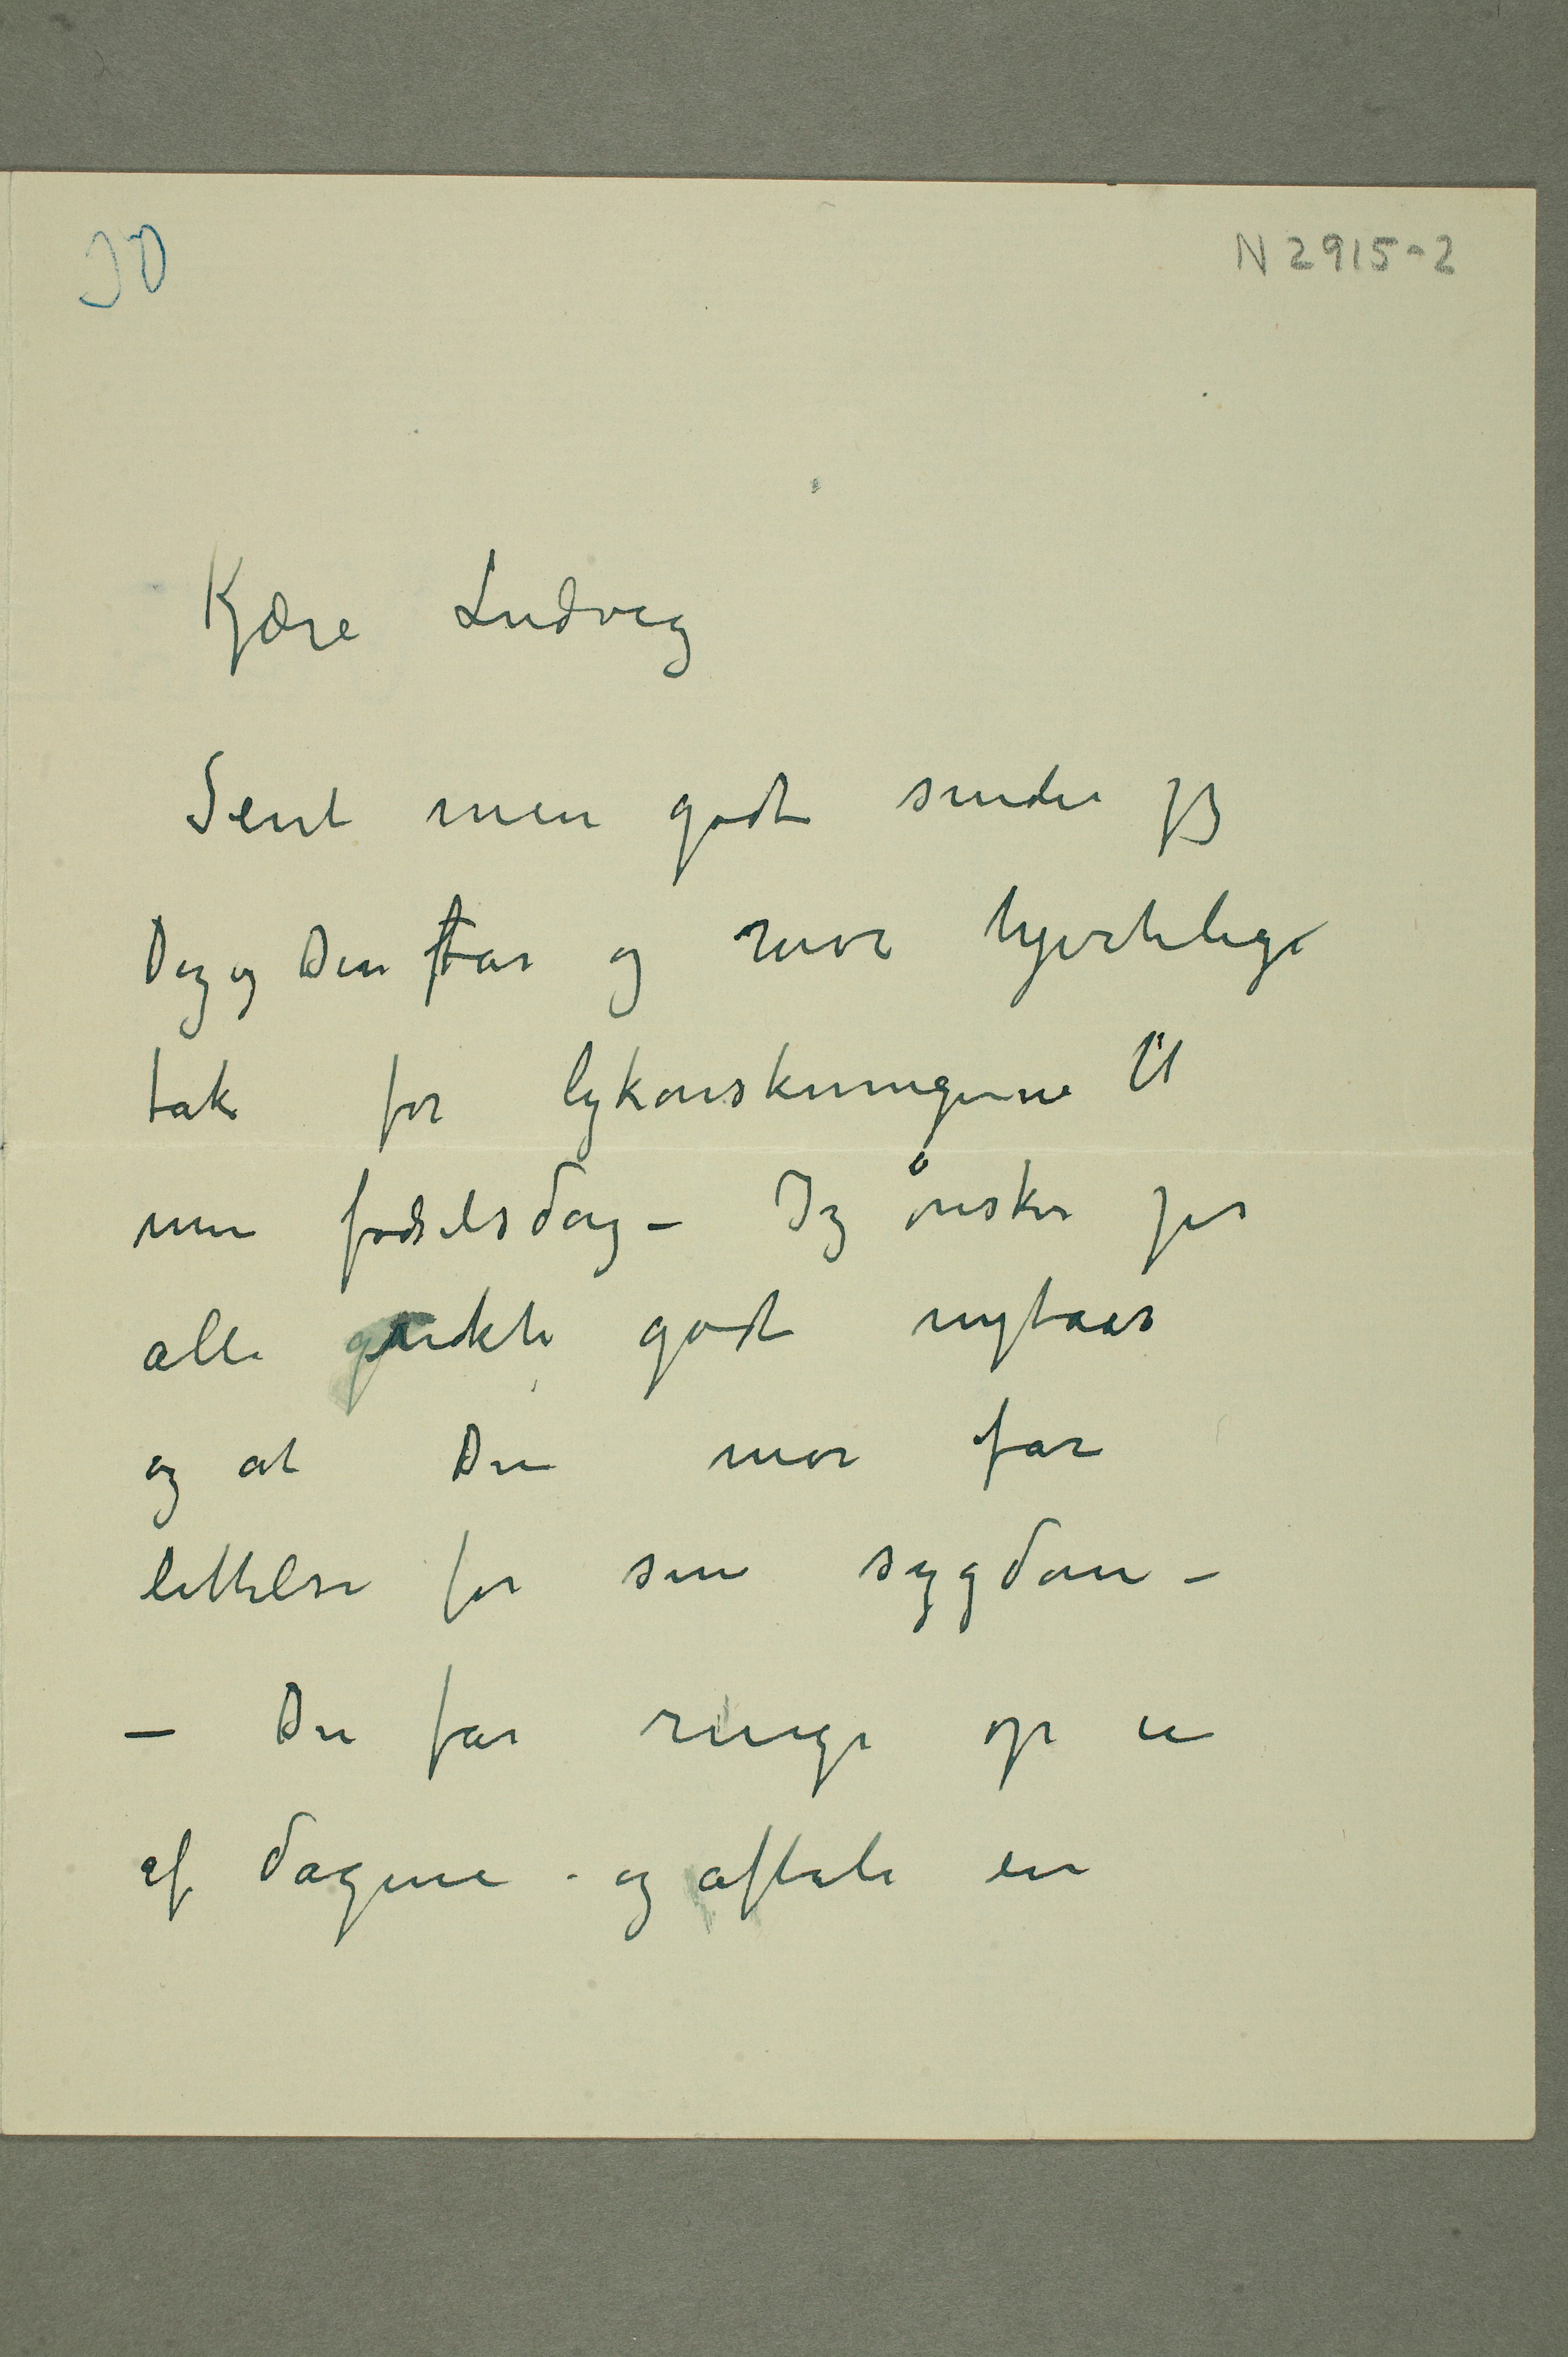 30
N 2915-2
Kjære Ludvig
Sent men godt sender jeg
Dig og Din far og mor hjertelige
tak for lykønskningerne til
min fødselsdag – Jeg ønsker jer
alle godt nytaar
og at Din mor får
lettelse for sin sygdom –
– Du får ringe op en
af dagene - og aftale en